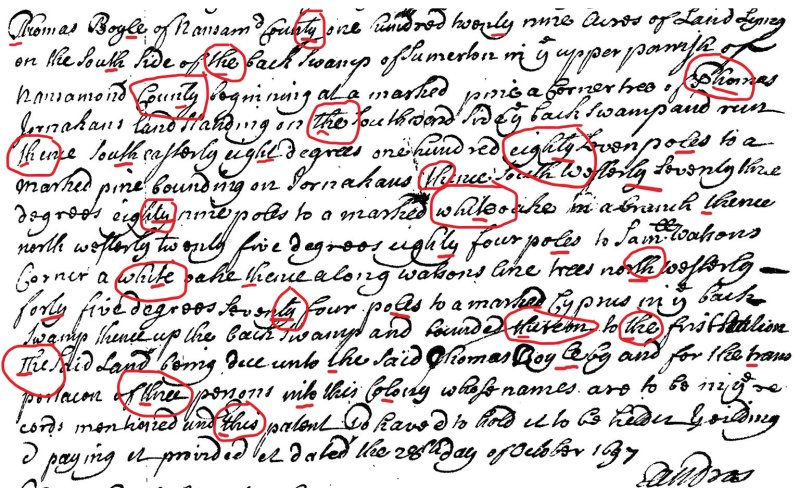 Thomas Boyle of Nansamd County one hundred twenty nine Acres of Land Lying
on the South Side of the back Swamp of Sumerton in ye upper parish of
Nansamond County beginning at a marked pine a Corner tree of Thomas
Jornakans land standing on the Southward Side ye back Swamp and run
thence South easterly eight degrees one hundred eighty Seven poles to a
marked pine bounding on Jornakans thence South Westerly Seventy three
degrees eighty nine poles to a marked white oake in a branch thence
north westerly twenty five degrees eighty four poles to Samll Watsons
Corner a white oake thence along watsons line trees north westerly
forty five degrees Seventy four poles to a marked Cyprus in ye back
Swamp thence up the back Swamp and bounded to the first Station
The Said Land being due unto the Said Thomas Boyle by and for the trans
portacon of three persons into this Colony whose names are to be in ye re
cords mentioned und this patent To have &c to hold &c to be held &c Yeilding
& paying &c provided &c dated the 28th day of October 1697
Andros